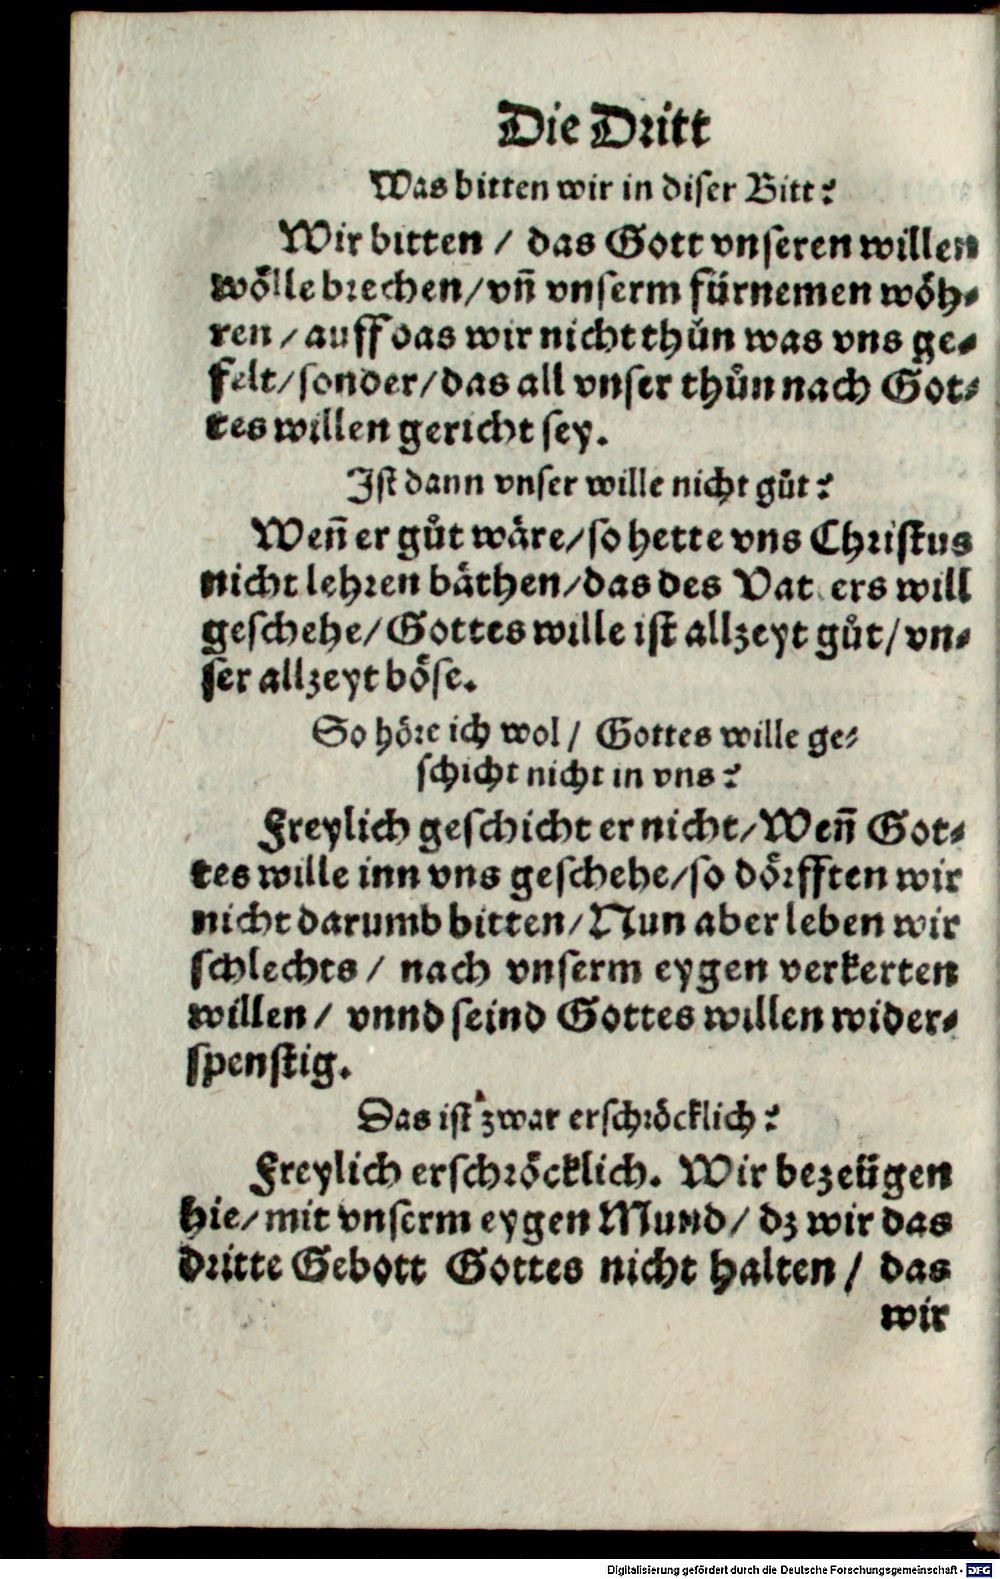 Die Dritt
Was bitten wir in diser Bitt?
Wir bitten / das Gott vnseren willen
wölle brechen/vñ vnserm fürnemen wöh⸗
ren / auff das wir nicht thůn was vns ge⸗
felt/sonder/das all vnser thůn nach Got⸗
tes willen gericht sey.
Ist dann vnser wille nicht gůt?
Weñ er gůt wäre/so hette vns Christus
nicht lehren bäthen/das des Vat ers will
geschehe/Gottes wille ist allzeyt gůt/vn⸗
ser allzeyt böse.
So höre ich wol / Gottes wille ge⸗
schicht nicht in vns?
Freylich geschicht er nicht/Weñ Got⸗
tes wille inn vns geschehe/so dörfften wir
nicht darumb bitten/Nun aber leben wir
schlechts / nach vnserm eygen verkerten
willen / vnnd seind Gottes willen wider⸗
spenstig.
Das ist zwar erschröcklich?
Freylich erschröcklich. Wir bezeügen
hie/mit vnserm eygen Mund/ dz wir das
dritte Gebott Gottes nicht halten / das
wir
Digitalisierung gefördert durch die Deutsche Forschungsgemeinschaft - DFG